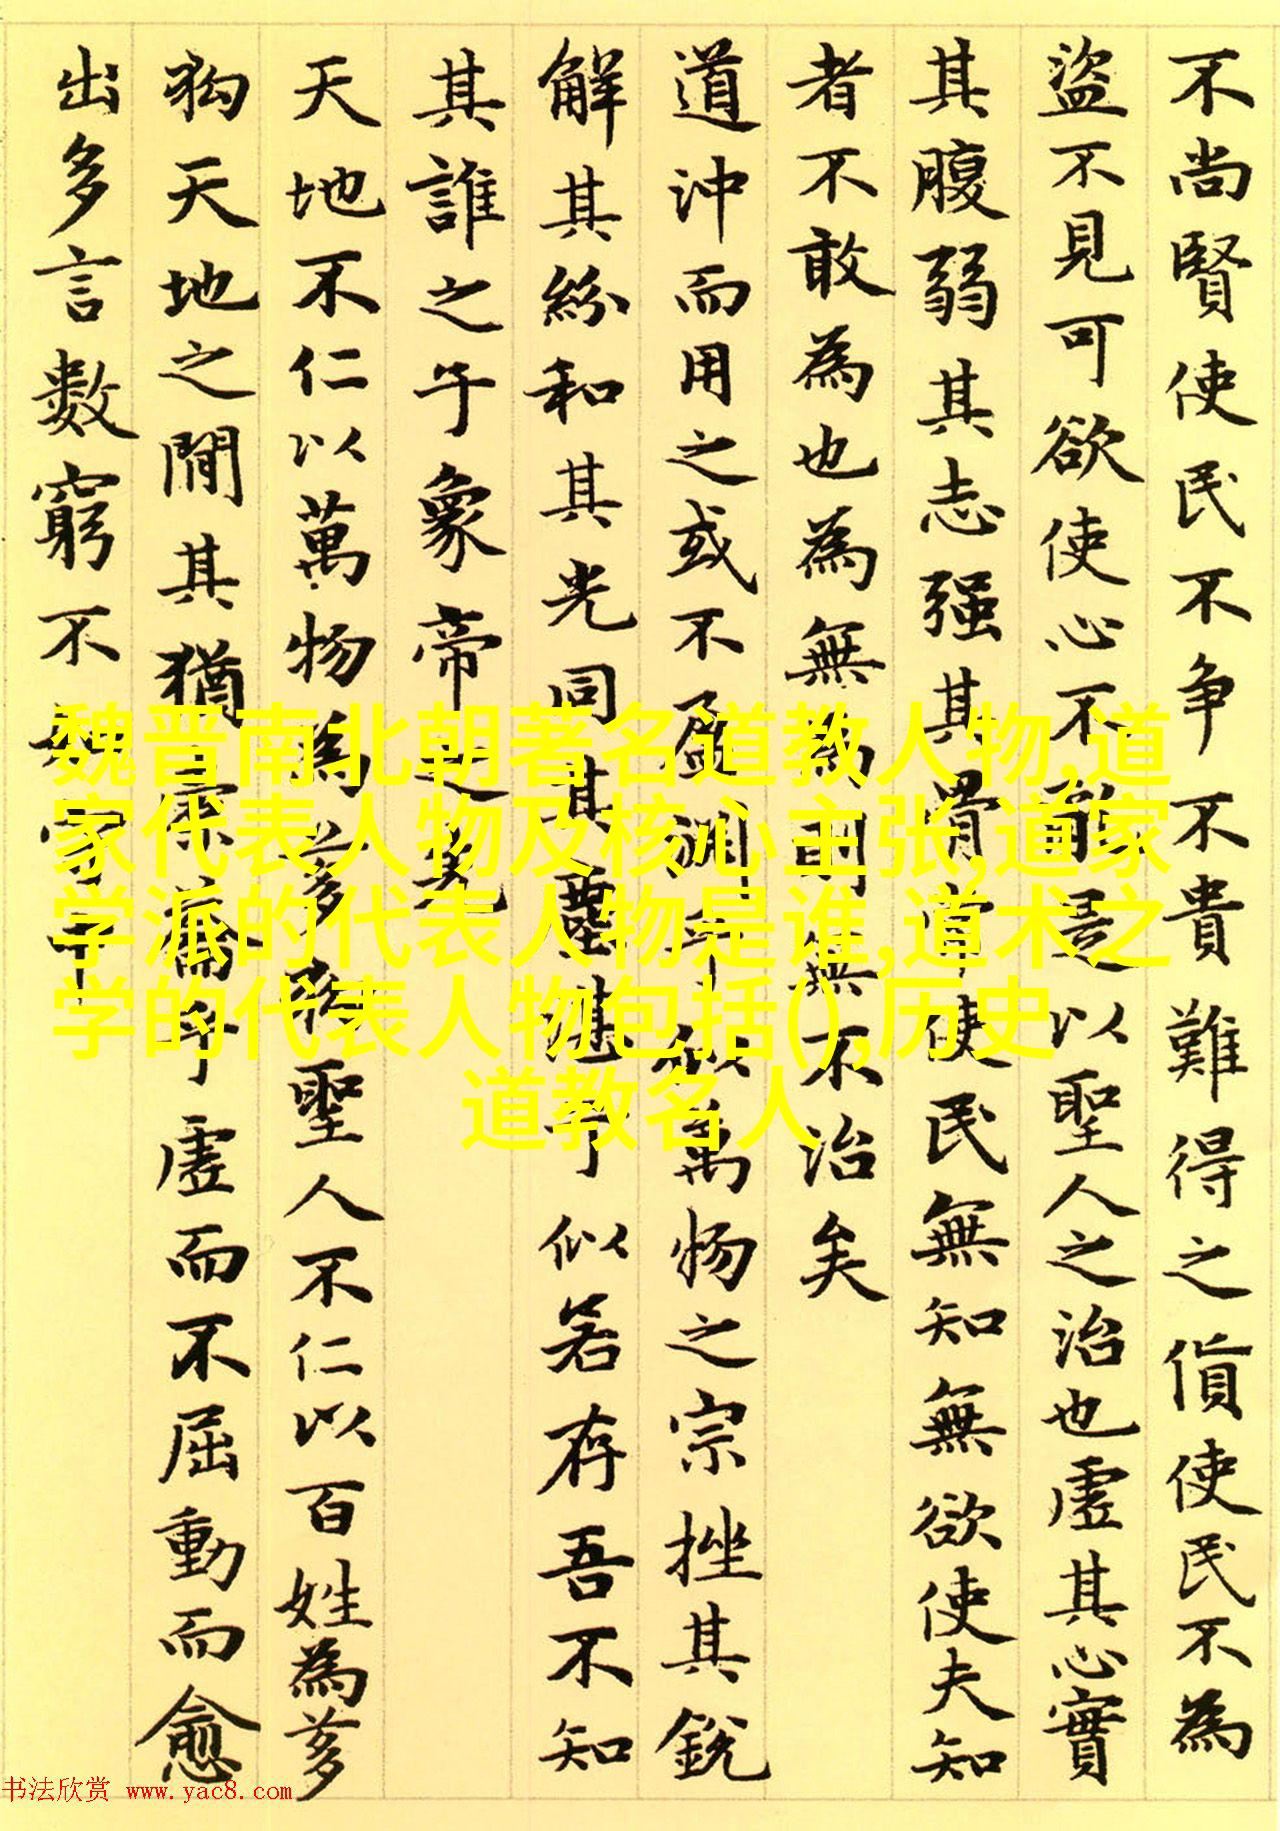 不尚賢使民不争不貴難得之貨使民不為
盜不見可欲使心不亂是以聖人之治也虛其心實
其腹弱其志强其骨常使民無知無欲使夫知
者不敢為也為無為則無不治矣
道沖而用之或不盈淵乎似萬物之宗挫其銳
解其紛和其光同其塵湛兮似若存吾不知
其誰之子象帝之先
天地不仁以萬物為芻狗聖人不仁以百姓為芻
狗天地之間其猶橐籥乎虛而不屈動而愈
出多言數窮不如守中
魏晋南北朝著名道教人物,道
家代表人物及核心主张,道家
学派的代表人物是谁,道术之
学的代表人物包括(),历史
道教名人
书法欣赏 www.yac8.com